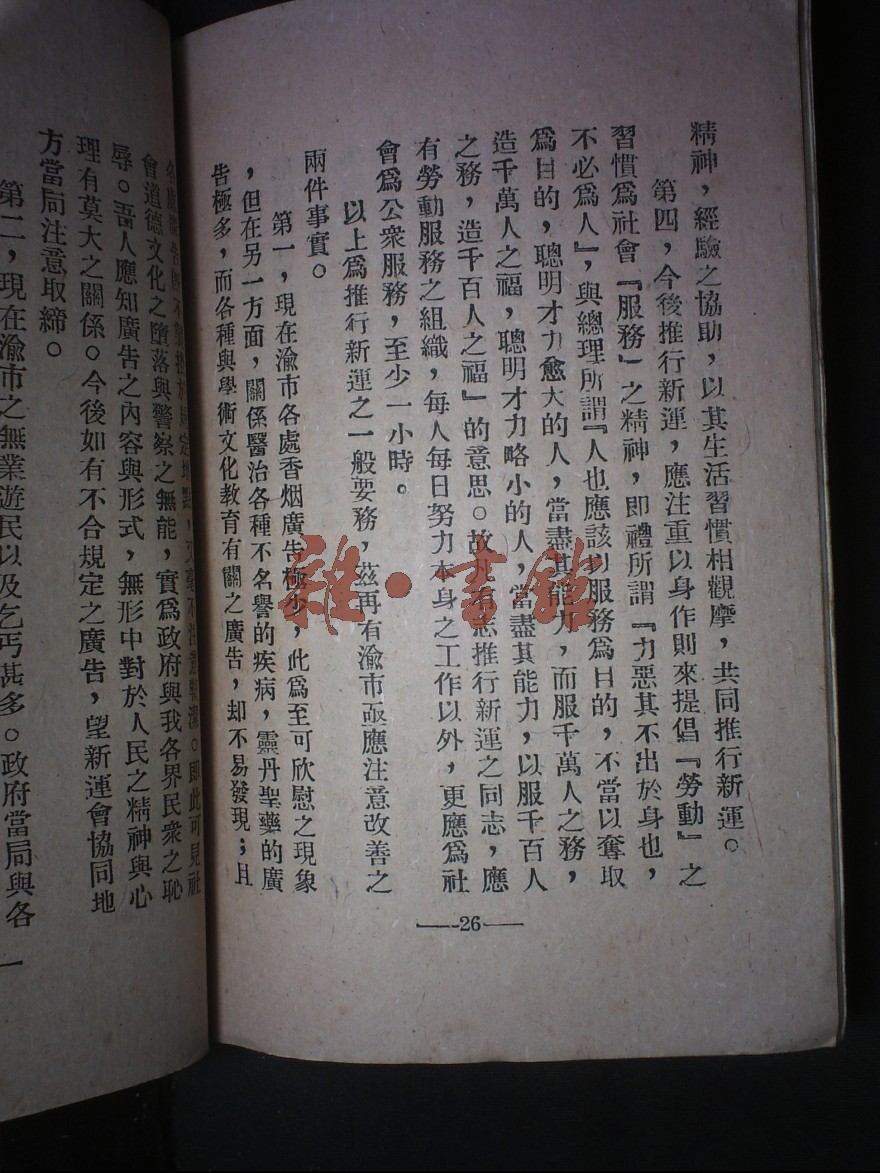 精神，經驗之協助，以其生活習慣相觀摩，共同推行新運。
第四，今後推行新運，應注重以身作則來提倡『勞動』之
習慣爲社會『服務』之精神，卽禮所謂『力惡其不出於身也，
不必爲人』，與總理所謂『人也應該以服務爲目的，不當以奪取
爲目的，聰明才力愈大的人，當盡其能力，而服千萬人之務，
造千萬人之福，聰明才力略小的人，當盡其能力，以服千百人
之務，造千百人之福』的意思。故凡有志推行新運之同志，應
有勞動服務之組織，每人每日努力本身之工作以外，更應爲社
會爲公衆服務，至少一小時。
以上爲推行新運之一般要務，茲再有渝市亟應注意改善之
兩件事實。
第一，現在渝市各處香烟廣告極少，此爲至可欣慰之現象
，但在另一方面，關係醫治各種不名譽的疾病，靈丹聖藥的廣
告極多，而各種與學術文化教育有關之廣告，却不易發現；且
—26—
卽此可見社
會道德文化之墮落與警察之無能，實爲政府與我各界民衆之恥
辱。吾人應知廣告之內容與形式，無形中對於人民之精神與心
理有莫大之關係。今後如有不合規定之廣告，望新運會協同地
方當局注意取締。
第二，現在渝市之無業遊民以及乞丐甚多。政府當局與各
雜·書館